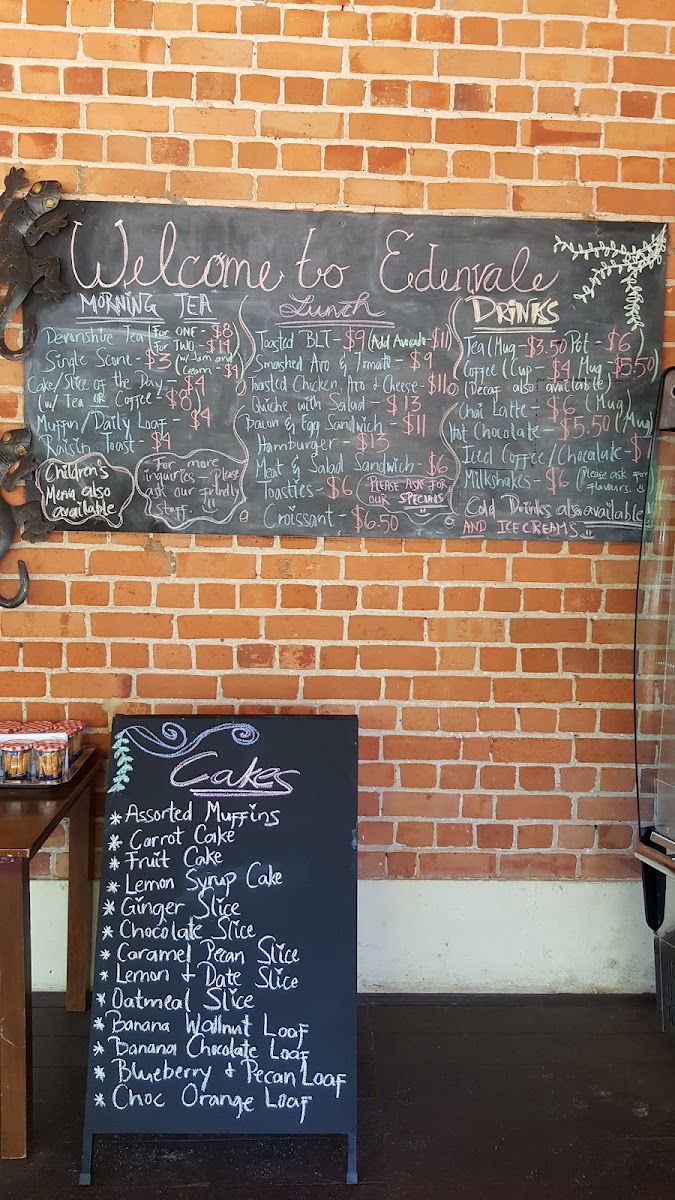 Welcome to Edenvale
MORNING TEA
Devonshire Tea (For ONE - $8
For TWO - $14
Single Scone - $3 (w/ Jam and
Cream - $4)
Cake/Slice of the Day - $4
(w/ Tea OR Coffee - $8)
Muffin / Daily Loaf - $4
Raisin Toast - $4
Children's
Menu also
available
For more
inquiries - Please
ask our friendly
staff.
Lunch
Toasted BLT - $9 (Add Avocado - $11)
Smashed Avo & Tomato - $9
Toasted Chicken, Avo & Cheese - $11
Quiche with Salad - $13
Bacon & Egg Sandwich - $11
Hamburger - $13
Meat & Salad Sandwich - $6
Toasties - $6
Croissant - $6.50
PLEASE ASK FOR
OUR SPECIALS
DRINKS
Tea (Mug - $3.50 Pot - $6)
Coffee (Cup - $4 Mug - $5.50)
(Decaf also available)
Chai Latte - $6 (Mug)
Hot Chocolate - $5.50 (Mug)
Iced Coffee/Chocolate - $7
Milkshakes - $6 (Please ask for
flavours.
Cold Drinks also available
AND ICE CREAMS
Cakes
* Assorted Muffins
* Carrot Cake
* Fruit Cake
* Lemon Syrup Cake
* Ginger Slice
* Chocolate Slice
* Caramel Pecan Slice
* Lemon + Date Slice
* Oatmeal Slice
* Banana Wallnut Loaf
* Banana Chocolate Loaf
* Blueberry + Pecan Loaf
* Choc Orange Loaf